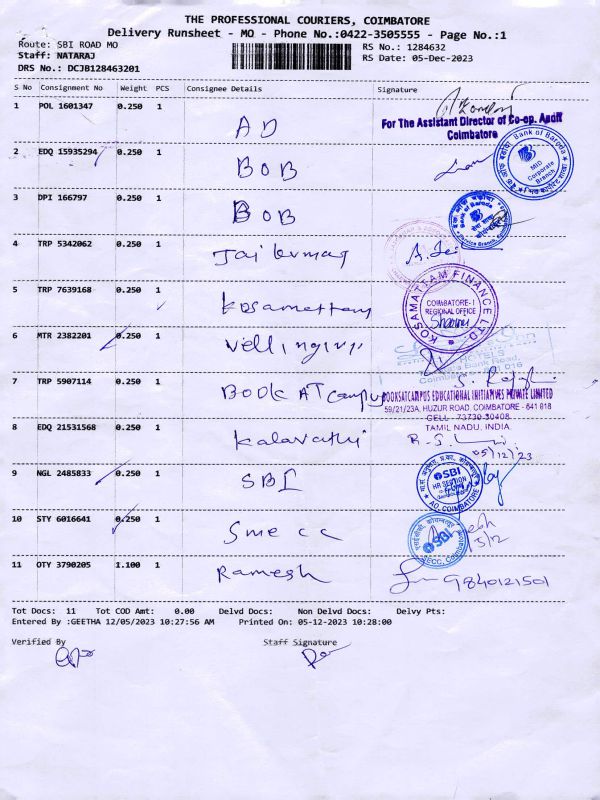 THE PROFESSIONAL COURIERS, COIMBATORE
Delivery Runsheet - MO - Phone No.:0422-3505555 - Page No.:1
Route: SBI ROAD MO RS No.: 1284632
Staff: NATARAJ RS Date: 05-Dec-2023
DRS No.: DCJB128463201
S No Consignment No Weight PCS Consignee Details Signature
1 POL 1601347 0.250 1 AD
For The Assistant Director of Co-op. Audit
Coimbatore
2 EDQ 15935294 0.250 1 BOB
Bank of Baroda
MID
Corporate
Branch
3 DPI 166797 0.250 1 BOB
4 TRP 5342062 0.250 1 Jai kumar
5 TRP 7639168 0.250 1 Kosamattam
KOSAMATTAM FINANCE LTD.
COIMBATORE-I
REGIONAL OFFICE
6 MTR 2382201 0.250 1 Vellingiri
Bank Road,
7 TRP 5907114 0.250 1 BOOK AT Campus
BOOKSATCAMPUS EDUCATIONAL INITIATIVES PRIVATE LIMITED
59/21/23A, HUZUR ROAD, COIMBATORE - 641 018
CELL : 73730 30408
TAMIL NADU, INDIA.
8 EDQ 21531568 0.250 1 Kalavathi
05/12/23
9 NGL 2485833 0.250 1 SBI
SBI
HR SECTION
AO, COIMBATORE
10 STY 6016641 0.250 1 Sme cc
SBI
5/12
11 OTY 3790205 1.100 1 Ramesh 9840121501
Tot Docs: 11 Tot COD Amt: 0.00 Delvd Docs: Non Delvd Docs: Delvy Pts:
Entered By :GEETHA 12/05/2023 10:27:56 AM Printed On: 05-12-2023 10:28:00
Verified By Staff Signature